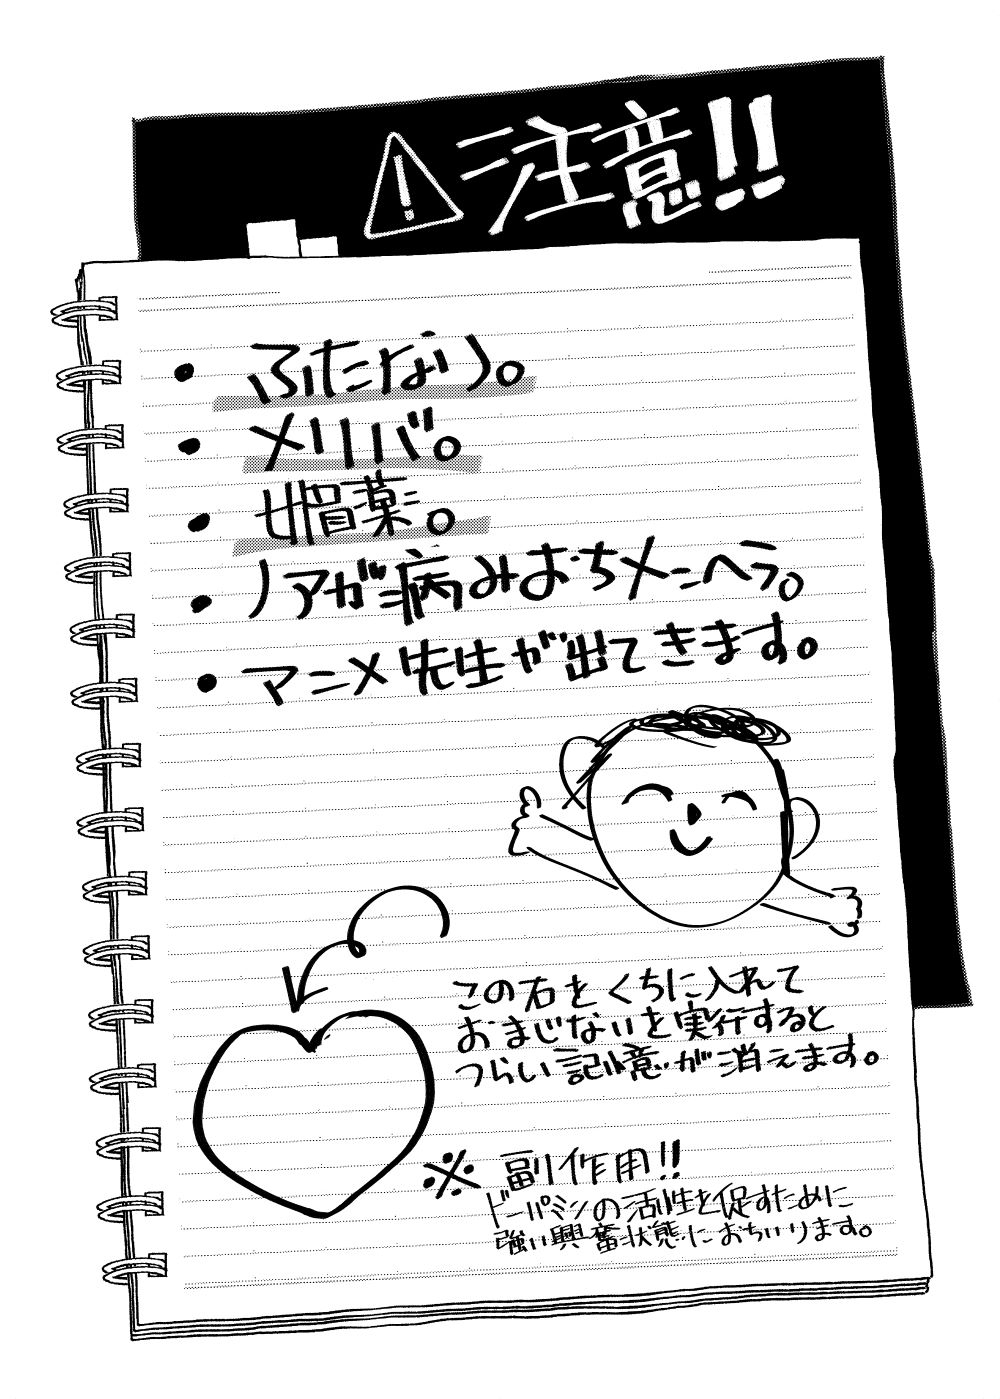 ⚠注意!!
・ふたなり。
・メリバ。
・媚薬。
・ノアが病みおちメンヘラ。
・マニメ先生が出てきます。
この石をくちに入れて
おまじないを実行すると
つらい記憶が消えます。
※副作用!!
ドーパミンの活性を促すために
強い興奮状態におちいります。